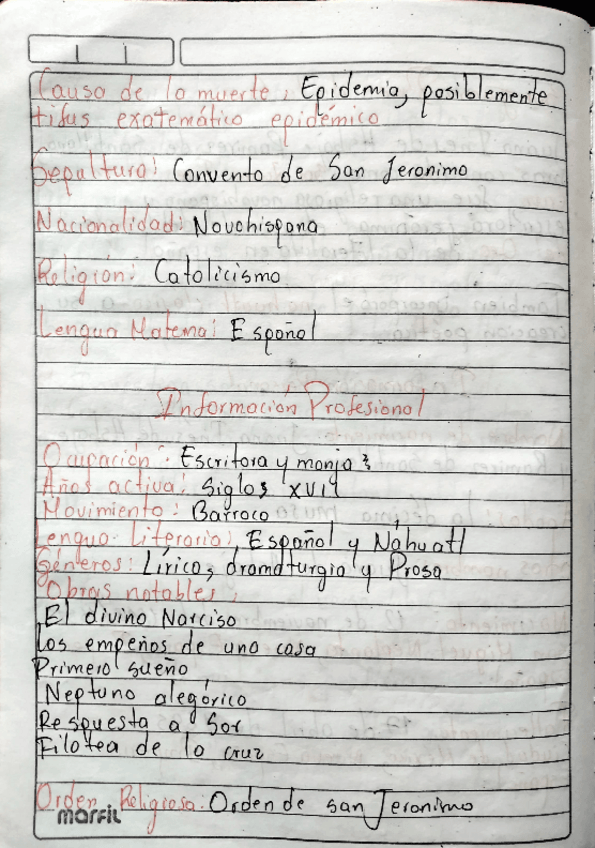 Causa de la muerte: Epidemia, posiblemente
tifus exatemático epidémico
Sepultura: Convento de San Jeronimo
Nacionalidad: Novohispana
Religión: Catolicismo
Lengua Materna: Español
Información Profesional
Ocupación: Escritora y monja
Años activa: Siglos XVII
Movimiento: Barroco
Lengua Literaria: Español y Náhuatl
Géneros: Lírica, dramaturgia y Prosa
Obras notables:
El divino Narciso
Los empeños de una casa
Primero sueño
Neptuno alegórico
Respuesta a Sor
Filotea de la cruz
Orden Religiosa: Orden de san Jeronimo
marfil